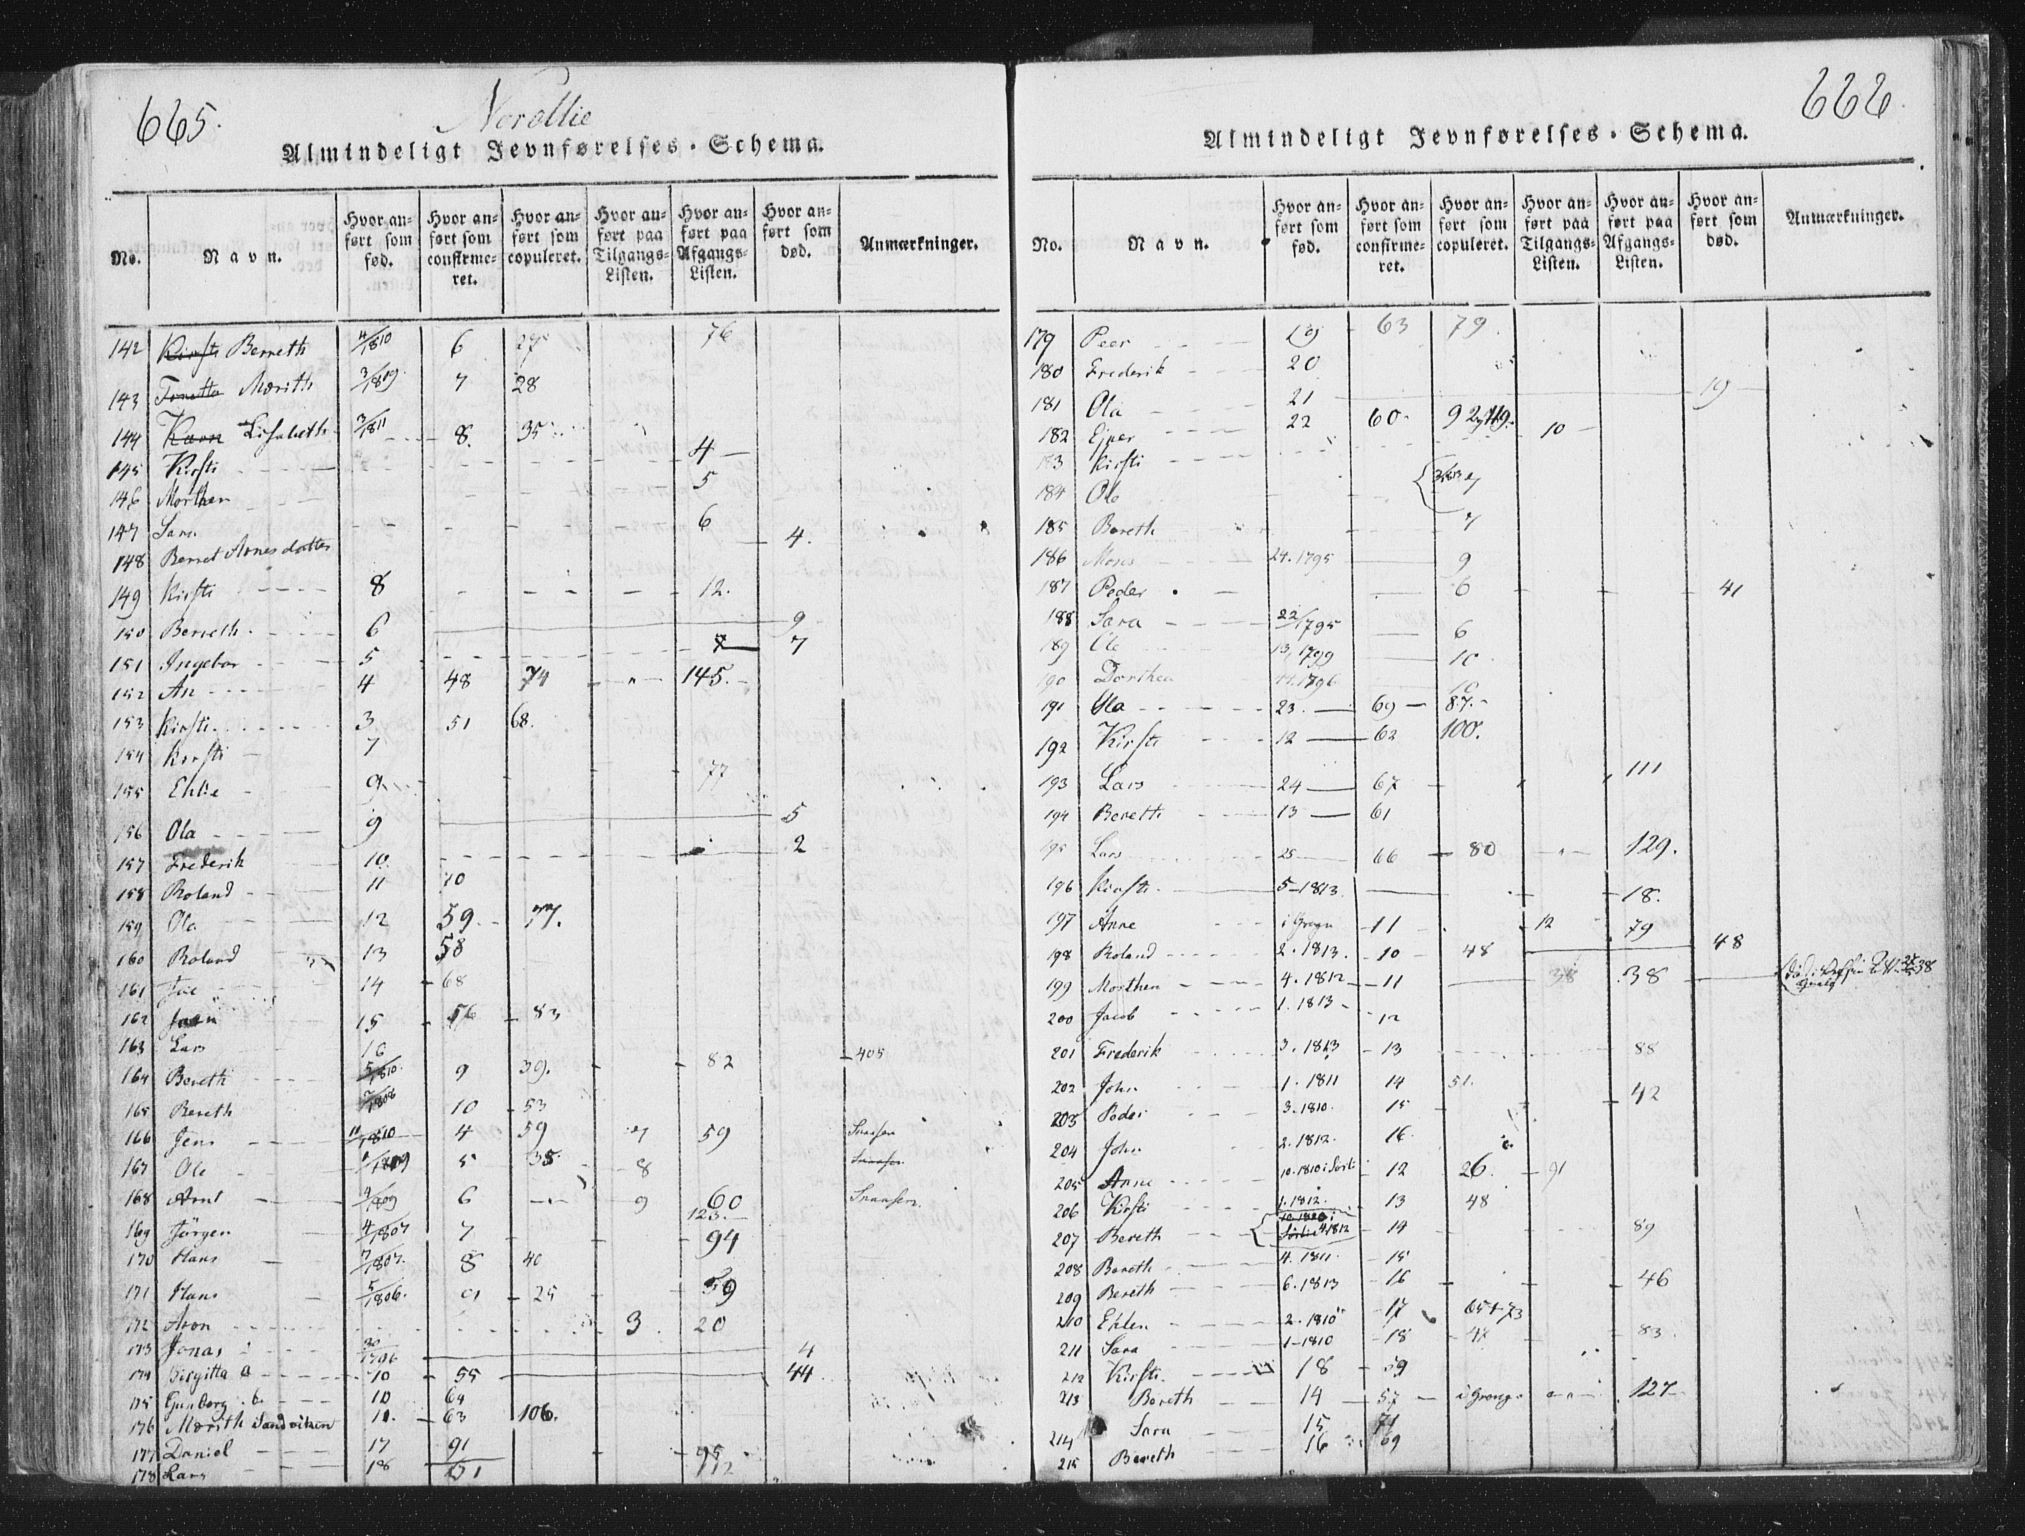 665.
Nordlie
Almindeligt Jevnførelses-Schema.
No. | Navn. | Hvor anført som fød. | Hvor anført som confirmeret. | Hvor anført som copuleret. | Hvor anført paa Tilgangs-Listen. | Hvor anført paa Afgangs-Listen. | Hvor anført som død. | Anmærkninger.
142 Kirsti Berreth 4/1810 6 27 76
143 Tonetta Merith 3/1819 7 28
144 Karn Lisabeth 3/1811 8. 35
145 Kirsti 4
146 Morthen 5
147 Sara 6
148 Berret Arnesdatter 4.
149 Kirsti 8 12.
150 Berreth 6 9
151 Ingebor 5 8 7
152 An 4 48 74 " 145.
153 Kirsti 3 51 68.
154 Kirsti 7
155 Ehlie 9 77
156 Ola 9 5
157 Frederik 10. 2
158 Roland 11 10
159 Ole 12 59 77.
160 Roland 13 58
161 14 68
162 15 56 83
163 Lars 16 405
164 Bereth 5/1810. 9 39. 82
165 Bereth 7/1808 10 53
166 Jens 11/1810 4 59 7 59 Snaasen
167 Ole 1/1809 5 35 8 Snaasen
168 Arnt 4/1809 6 9 60 Snaasen
169 Jörgen 4/1807 7 123. 94
170 Hans 7/1807. 8 40
171 Hans 5/1806. 9 25 59
172 Aron 3 20
173 Jonas 30/1796 4
174 Birgitta 10 55 44
175 Gunborg 10 64
176 Merith Sandviken 11. 63 106.
177 Daniel 17 91 95
178 Lars 18 112
666.
Almindeligt Jevnførelses-Schema.
No. | Navn. | Hvor anført som fød. | Hvor anført som confirmeret. | Hvor anført som copuleret. | Hvor anført paa Tilgangs-Listen. | Hvor anført paa Afgangs-Listen. | Hvor anført som død. | Anmærkninger.
179 Peer 19 63 79.
180 Frederik 20
181 Ola 21 19
182 Ejner 22 60. 92, 119. 10
183 Kirsti
184 Ole 7
185 Bereth 7
186 Mons 24. 1795 9
187 Peder 6 41
188 Sara 22/1795 6
189 Ole 13, 1799 10
190 Dorthea 11. 1796 10
191 Ola 23. 69 87.
192 Kirsti 12 62 100.
193 Lars 24 67 111
194 Bereth 13 61
195 Lars 25 66 80 129.
196 Kirsti 5-1813 18.
197 Anne i Grogn 11 12 79
198 Roland 2. 1813. 10 48 48
199 Morthen 4. 1812 11 38 38
200 Jacob 1. 1813 12
201 Frederik 3. 1813 13 88
202 John 1. 1811 14 51.
203 Peder 3. 1810. 15 42
204 John 2. 1812. 16.
205 Anne 10. 1810 i Sørli 12 26. 91
206 Kirsti 1. 1812. 13 48
207 Bereth Sørlie 4 1812 14 89
208 Bereth 4. 1811 15
209 Bereth 6. 1813 16 46
210 Ehlen 2. 1810 17 65 + 73
211 Sara 1-1810 18 83.
212 Kirsti 18 59
213 Bereth 14 57 i Grong 127
214 Sara 15 71
215 Bereth 16 69